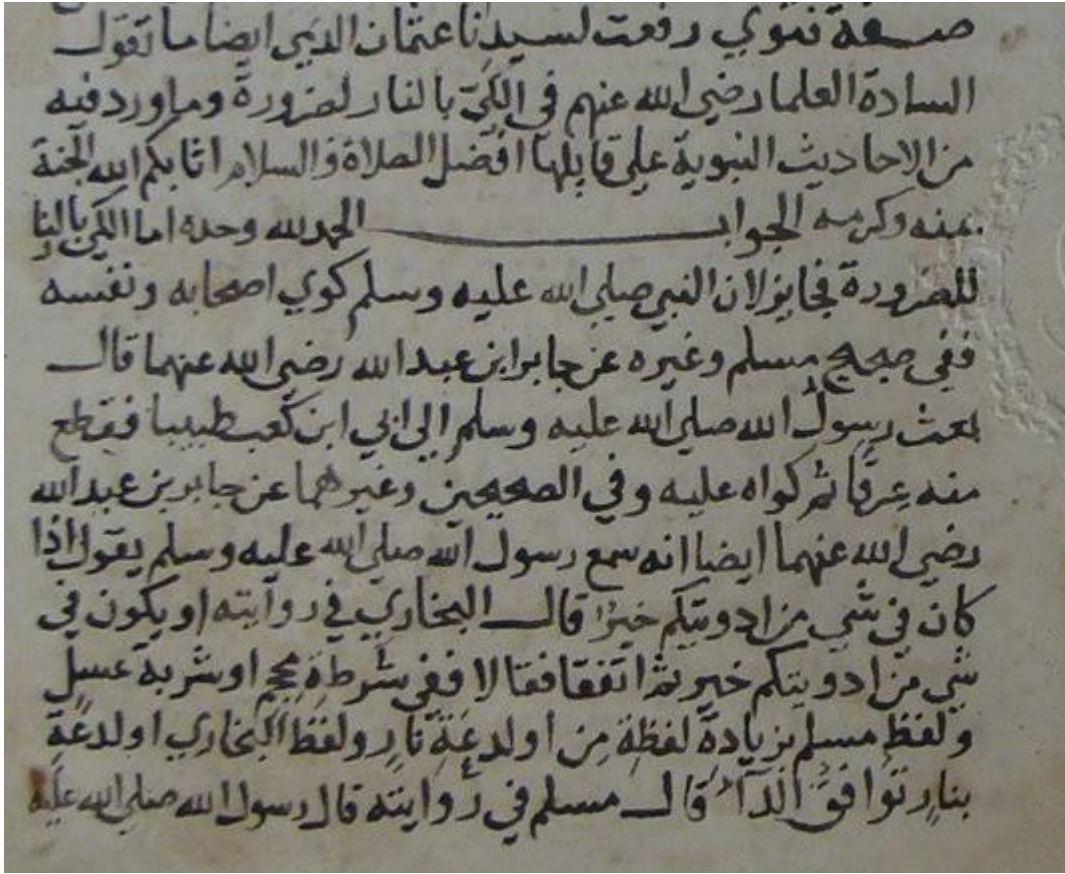 صفة فتوي رفعت لسيدنا عثمان الديمي ايضا ما تقول
السادة العلما رضي الله عنهم في الكي بالنار لضرورة وما ورد فيه
من الاحاديث النبوية علي قايلها افضل الصلاة والسلام اثابكم الله الجنة
بمنه وكرمه الجواب الحمد لله وحده اما الكي بالنا
للضرورة فجايز لان النبي صلي الله عليه وسلم كوي اصحابه ونفسه
ففي صحيح مسلم وغيره عن جابر ابن عبد الله رضي الله عنهما قال
بعث رسول الله صلي الله عليه وسلم الي ابي ابن كعب طبيبا فقطع
منه عِرقا ثم كواه عليه وفي الصحيحين وغيرهما عن جابر بن عبد الله
رضي الله عنهما ايضا انه سمع رسول الله صلي الله عليه وسلم يقول اذا
كان في شي من ادويتكم خير قال البخاري في روايته او يكون في
شي من ادويتكم خير ثم اتفقا فقالا ففي شرطة محجم او شربة عسل
ولفظ مسلم بزيادة لفظة مِن او لدغة نار ولفظ البخاري او لدغة
بنار توافق الدآء قال مسلم في روايته قال رسول الله صلي الله عليه